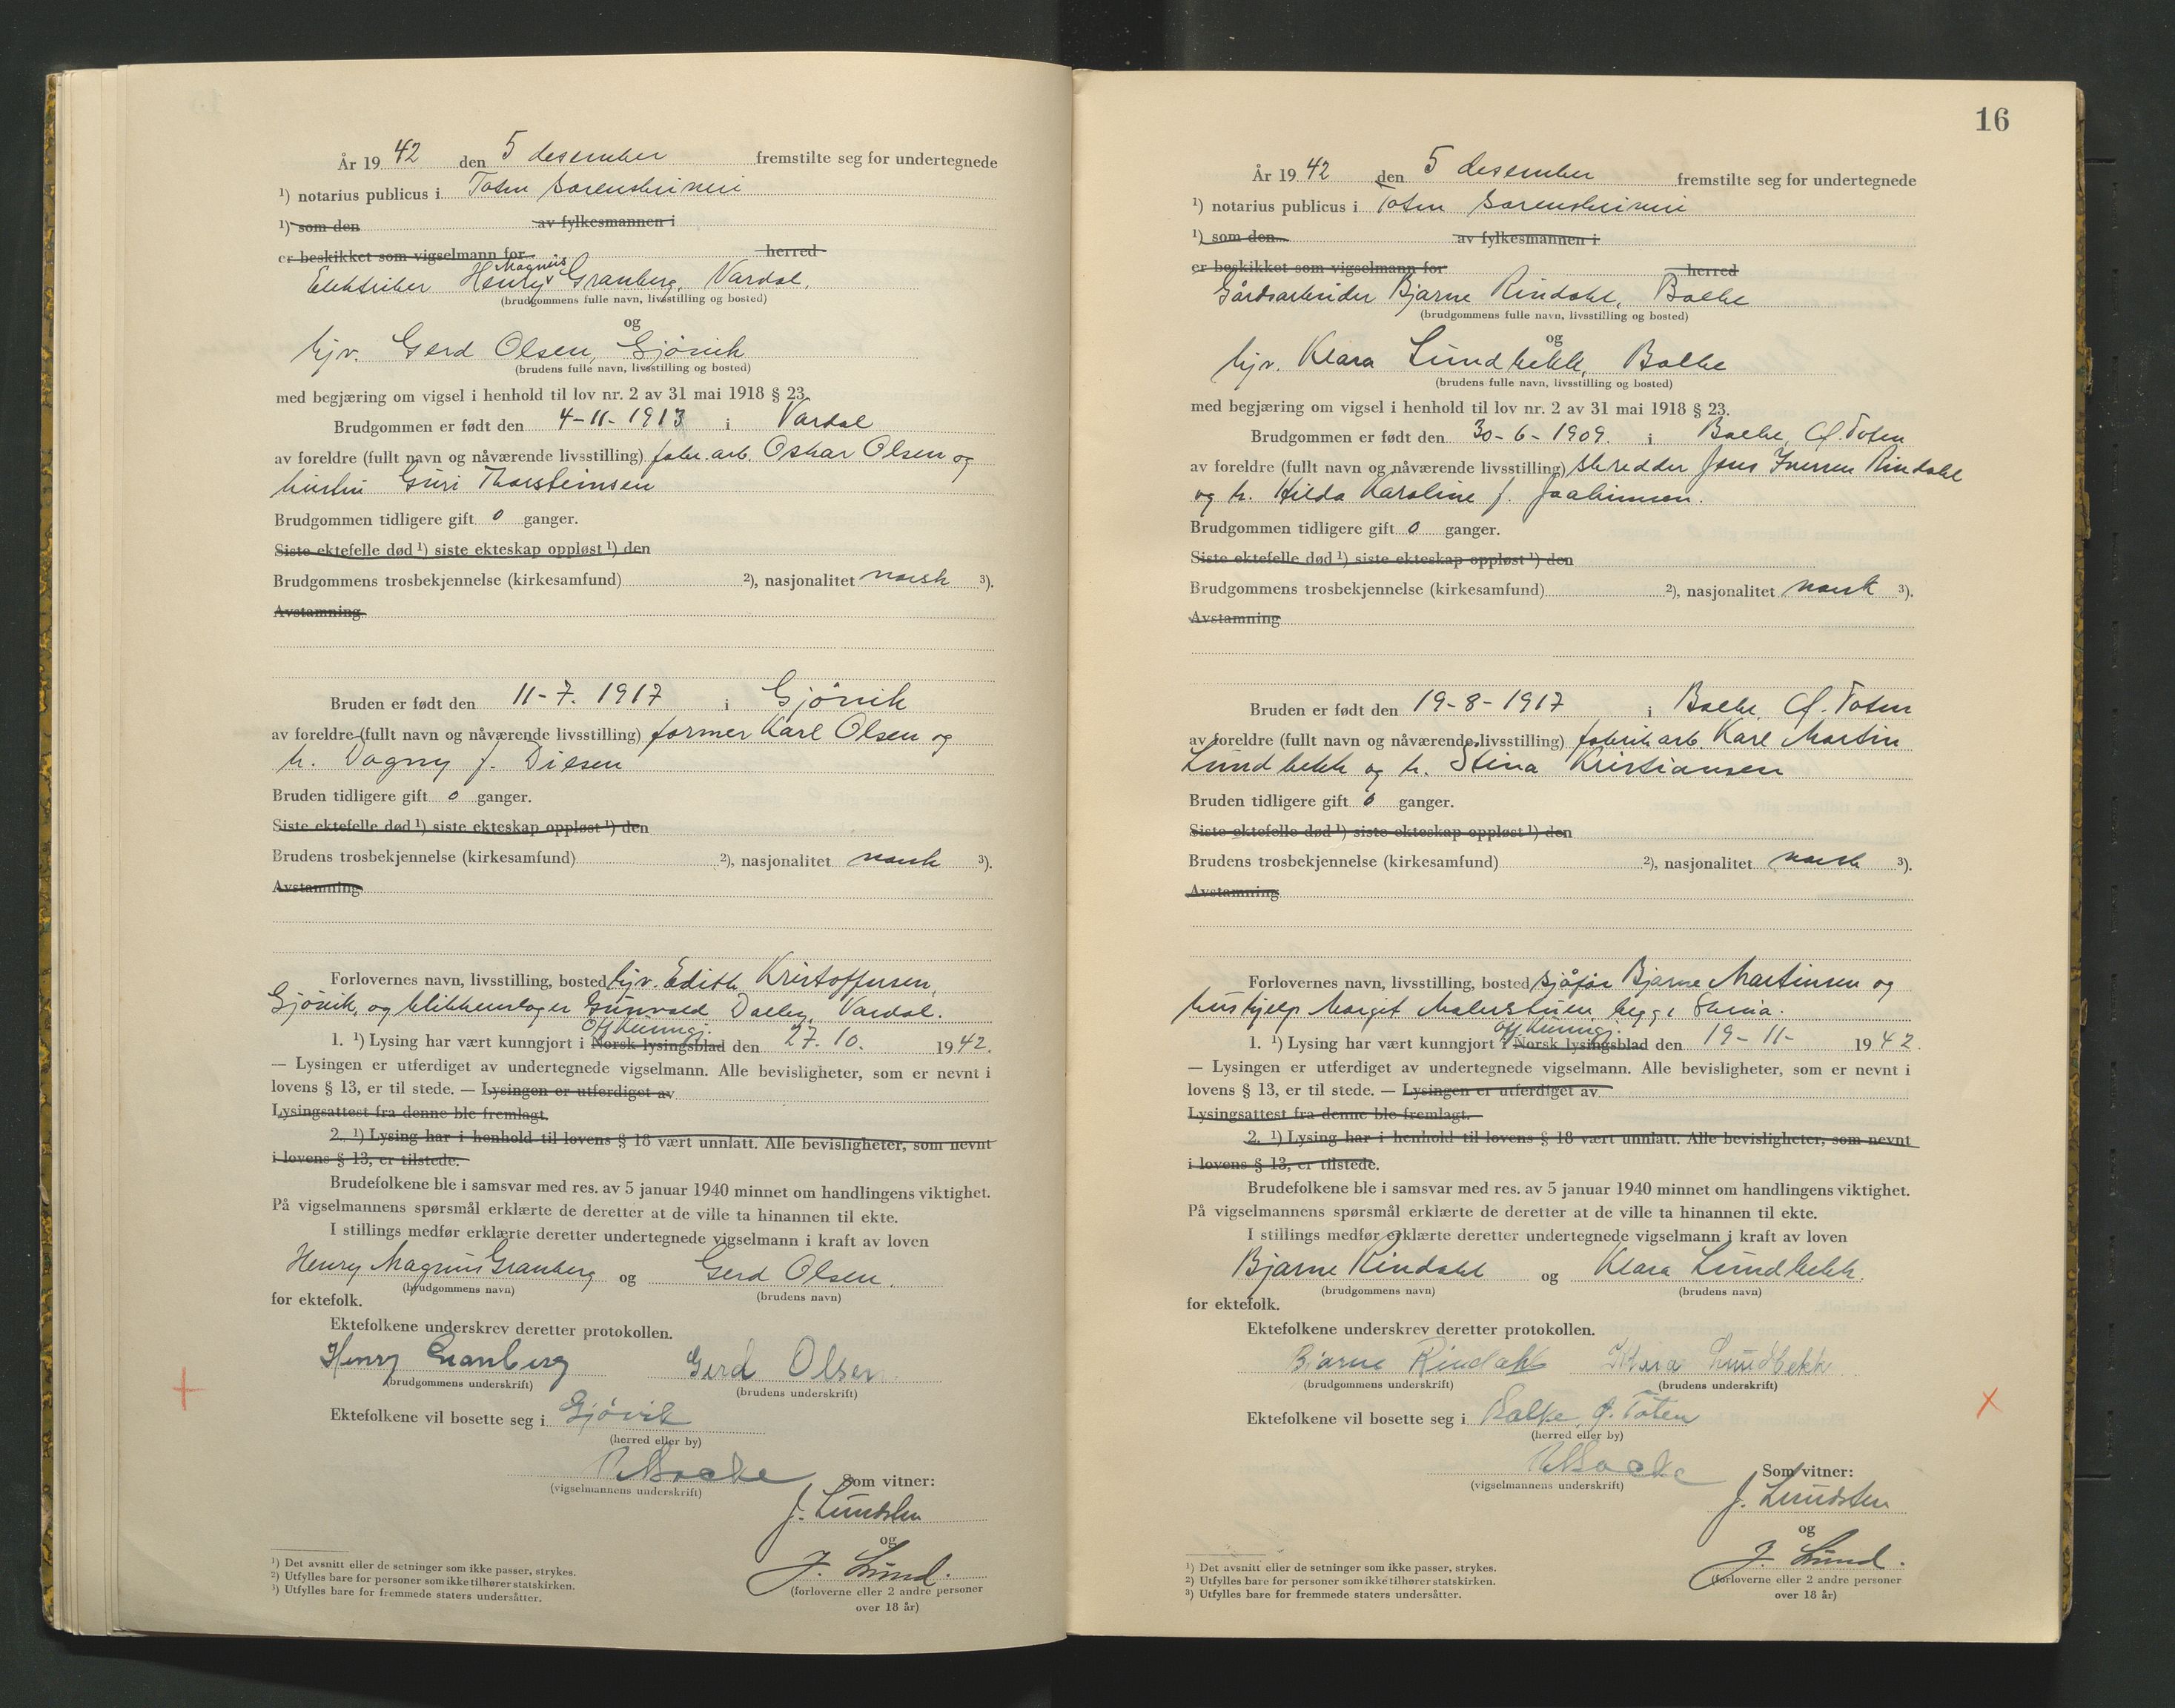 År 19 42 den 5 desember fremstilte seg for undertegnede
¹) notarius publicus i Toten sorenskriveri
¹) som den av fylkesmannen i
er beskikket som vigselmann for herred
Magnus
Elektriker Henry Granberg, Vardal.
(brudgommens fulle navn, livsstilling og bosted)
og
hjv. Gerd Olsen, Gjövik
(brudens fulle navn, livsstilling og bosted)
med begjæring om vigsel i henhold til lov nr. 2 av 31 mai 1918 § 23.
Brudgommen er født den 4-11-1913 i Vardal
av foreldre (fullt navn og nåværende livsstilling) fabr. arb. Oskar Olsen og
hustru Guri Thorsteinsen
Brudgommen tidligere gift 0 ganger.
Siste ektefelle død ¹) siste ekteskap oppløst ¹) den
Brudgommens trosbekjennelse (kirkesamfund) ²), nasjonalitet norsk ³).
Avstamning
Bruden er født den 11-7. 1917 i Gjövik
av foreldre (fullt navn og nåværende livsstilling) former Karl Olsen og
h. Dagny f. Diesen
Bruden tidligere gift 0 ganger.
Siste ektefelle død ¹) siste ekteskap oppløst ¹) den
Brudens trosbekjennelse (kirkesamfund) ²), nasjonalitet norsk ³).
Avstamning
Forlovernes navn, livsstilling, bosted hjv. Edith Kristoffersen,
Gjövik, og blikkenslager Gunvald Dalby, Vardal.
Off. kunngj.
1. ¹) Lysing har vært kunngjort i Norsk lysingsblad den 27. 10. 1942.
— Lysingen er utferdiget av undertegnede vigselmann. Alle bevisligheter, som er nevnt i
lovens § 13, er til stede. — Lysingen er utferdiget av
Lysingsattest fra denne ble fremlagt.
2. ¹) Lysing har i henhold til lovens § 18 vært unnlatt. Alle bevisligheter, som nevnt
i lovens § 13, er tilstede.
Brudefolkene ble i samsvar med res. av 5 januar 1940 minnet om handlingens viktighet.
På vigselmannens spørsmål erklærte de deretter at de ville ta hinannen til ekte.
I stillings medfør erklærte deretter undertegnede vigselmann i kraft av loven
Henry Magnus Granberg og Gerd Olsen.
(brudgommens navn) (brudens navn)
for ektefolk.
Ektefolkene underskrev deretter protokollen.
Henry Granberg Gerd Olsen.
(brudgommens underskrift) (brudens underskrift)
Ektefolkene vil bosette seg i Gjövik
(herred eller by)
(vigselmannens underskrift) Som vitner:
J. Lundsten
og
J. Lund.
(forloverne eller 2 andre personer
over 18 år)
¹) Det avsnitt eller de setninger som ikke passer, strykes.
²) Utfylles bare for personer som ikke tilhører statskirken.
³) Utfylles bare for fremmede staters undersåtter.
16
År 19 42 den 5 desember fremstilte seg for undertegnede
¹) notarius publicus i Toten sorenskriveri
¹) som den av fylkesmannen i
er beskikket som vigselmann for herred
Gårdsarbeider Bjarne Rindahl, Bolke
(brudgommens fulle navn, livsstilling og bosted)
og
hjv. Klara Lundbekk, Bolke
(brudens fulle navn, livsstilling og bosted)
med begjæring om vigsel i henhold til lov nr. 2 av 31 mai 1918 § 23.
Brudgommen er født den 30-6-1909. i Bolke, Ø. Toten
av foreldre (fullt navn og nåværende livsstilling) skredder Jens Iversen Rindahl
og h. Hilda Karoline f. Joakimsen.
Brudgommen tidligere gift 0 ganger.
Siste ektefelle død ¹) siste ekteskap oppløst ¹) den
Brudgommens trosbekjennelse (kirkesamfund) ²), nasjonalitet norsk ³).
Avstamning
Bruden er født den 19-8-1917 i Bolke, Ø. Toten
av foreldre (fullt navn og nåværende livsstilling) fabrikarb. Karl Martin
Lundbekk og h. Stina Kristiansen
Bruden tidligere gift 0 ganger.
Siste ektefelle død ¹) siste ekteskap oppløst ¹) den
Brudens trosbekjennelse (kirkesamfund) ²), nasjonalitet norsk ³).
Avstamning
Forlovernes navn, livsstilling, bosted sjåför Bjarne Martinsen og
hushjelp Margit Malerstuen, begge Skreia.
Off. kunngj.
1. ¹) Lysing har vært kunngjort i Norsk lysingsblad den 19-11- 1942.
— Lysingen er utferdiget av undertegnede vigselmann. Alle bevisligheter, som er nevnt i
lovens § 13, er til stede. — Lysingen er utferdiget av
Lysingsattest fra denne ble fremlagt.
2. ¹) Lysing har i henhold til lovens § 18 vært unnlatt. Alle bevisligheter, som nevnt
i lovens § 13, er tilstede.
Brudefolkene ble i samsvar med res. av 5 januar 1940 minnet om handlingens viktighet.
På vigselmannens spørsmål erklærte de deretter at de ville ta hinannen til ekte.
I stillings medfør erklærte deretter undertegnede vigselmann i kraft av loven
Bjarne Rindahl og Klara Lundbekk.
(brudgommens navn) (brudens navn)
for ektefolk.
Ektefolkene underskrev deretter protokollen.
Bjarne Rindahl Klara Lundbekk
(brudgommens underskrift) (brudens underskrift)
Ektefolkene vil bosette seg i Balke, Ø. Toten
(herred eller by)
(vigselmannens underskrift) Som vitner:
J. Lundsten
og
J. Lund.
(forloverne eller 2 andre personer
over 18 år)
¹) Det avsnitt eller de setninger som ikke passer, strykes.
²) Utfylles bare for personer som ikke tilhører statskirken.
³) Utfylles bare for fremmede staters undersåtter.